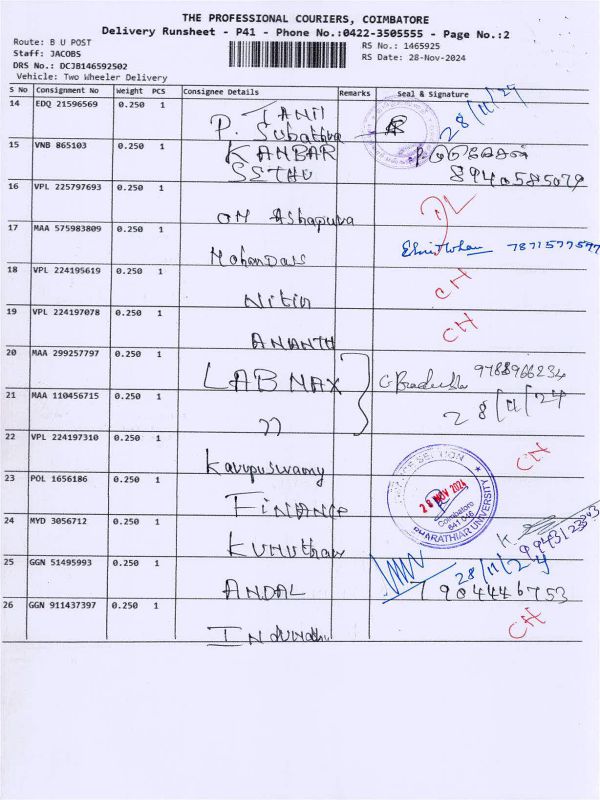 THE PROFESSIONAL COURIERS, COIMBATORE
Delivery Runsheet - P41 - Phone No.:0422-3505555 - Page No.:2
Route: B U POST
Staff: JACOBS
DRS No.: DCJB146592502
Vehicle: Two Wheeler Delivery
RS No.: 1465925
RS Date: 28-Nov-2024
S No Consignment No Weight PCS Consignee Details Remarks Seal & Signature
14 EDQ 21596569 0.250 1 TAMIL 28/11/24
P. Subathra
15 VNB 865103 0.250 1 KANBAR
8940585079
16 VPL 225797693 0.250 1 OM Ashapura
17 MAA 575983809 0.250 1 Mohandass 7871577597
18 VPL 224195619 0.250 1 Nitin CH
19 VPL 224197078 0.250 1 ANANTH CH
20 MAA 299257797 0.250 1 LAB NAX 9788966234
21 MAA 110456715 0.250 1 " 28/11/24
22 VPL 224197310 0.250 1 Karupuswamy CH
23 POL 1656186 0.250 1 FINANCE
28 NOV 2024
Coimbatore
641 046
BHARATHIAR UNIVERSITY
24 MYD 3056712 0.250 1
25 GGN 51495993 0.250 1 ANDAL 28/11/24
9044446753
26 GGN 911437397 0.250 1 CH